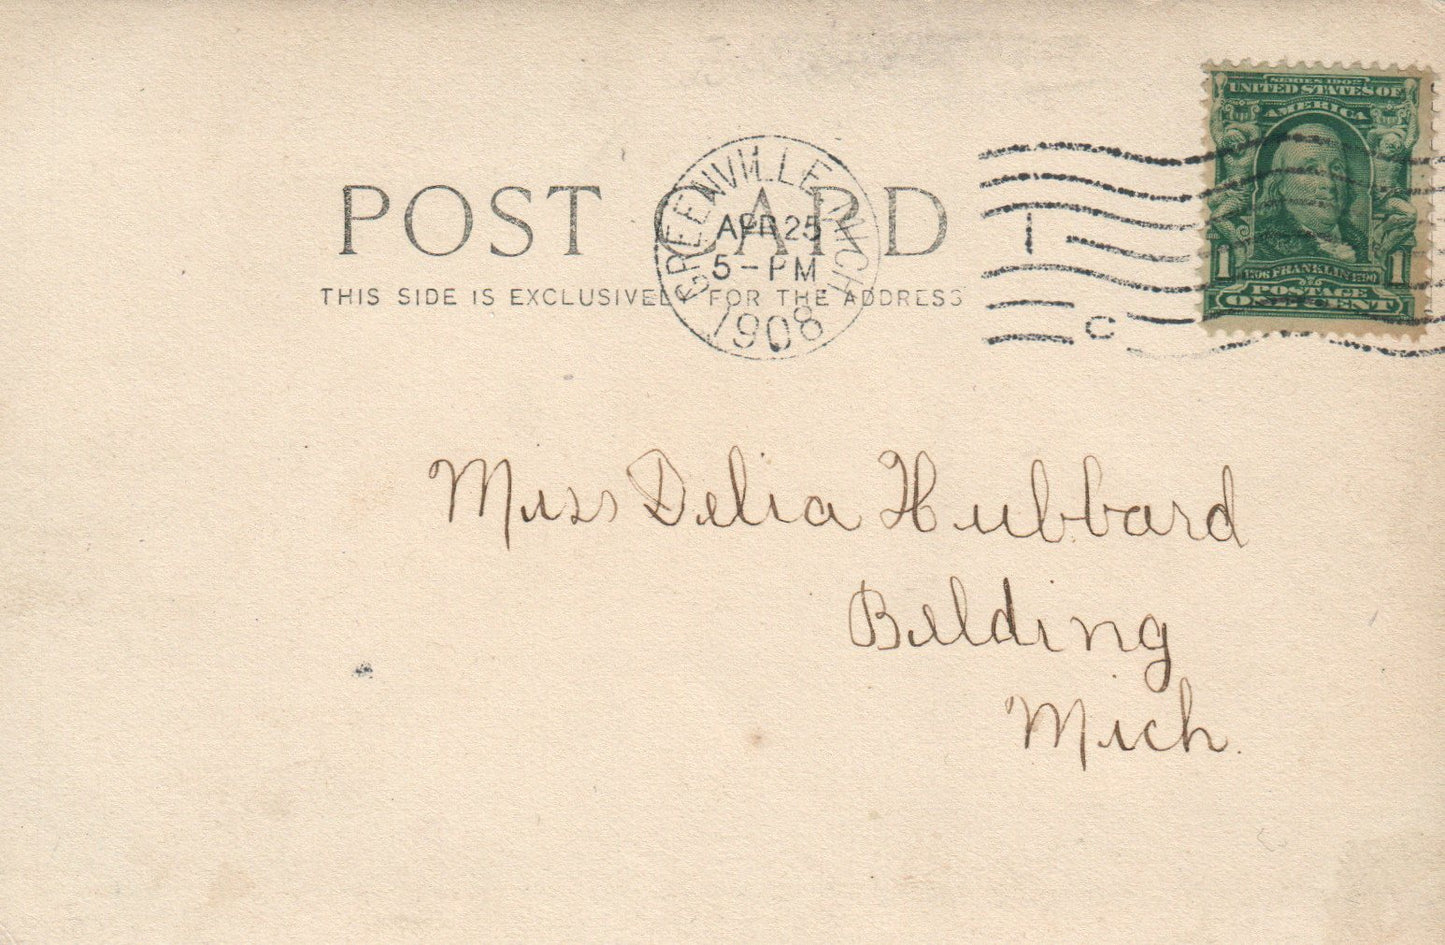 SERIES 1902
UNITED STATES OF
AMERICA
1706 FRANKLIN 1790
1 1
POSTAGE
ONE CENT
GREENVILLE, MICH.
APR 25
5-PM
1908
1
C
POST CARD
THIS SIDE IS EXCLUSIVELY FOR THE ADDRESS
Miss Delia Hubbard
Belding
Mich.